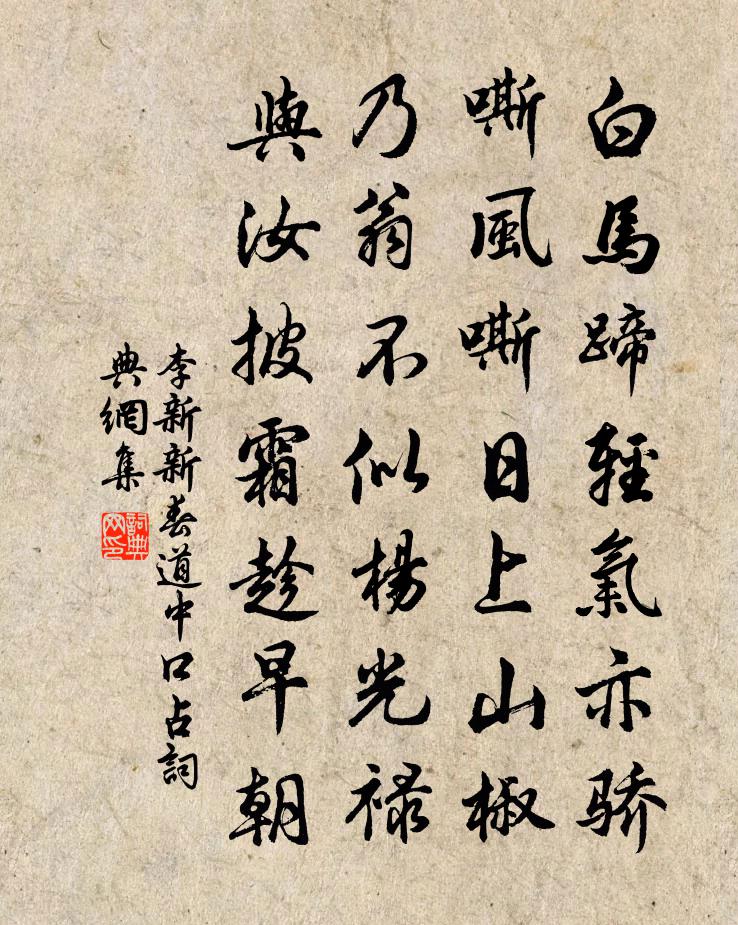 白馬蹄輕氣亦骄
嘶風嘶日上山椒
乃翁不似楊光禄
與汝披霜趁早朝
李新新春道中口占詞
典網集
詞典
网印